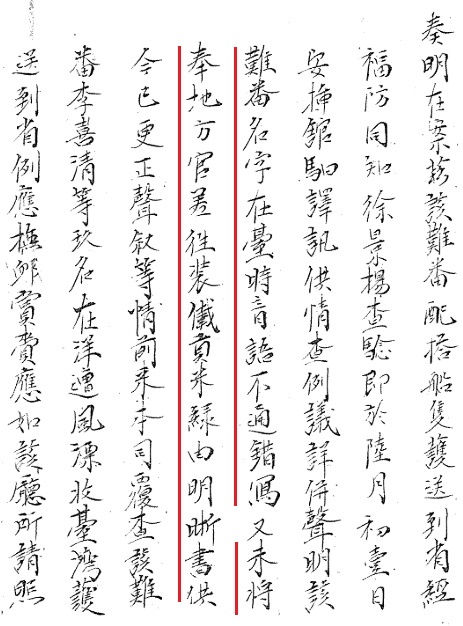 奏明在案茲該難番配搭船隻護送到省經
福防同知徐景楊查驗即於陸月初壹日
安插館馹譯訊供情查例議詳併聲明該
難番名字在臺時言語不通錯寫又未將
奉地方官差往裝儀貢米緣由明晰書供
今已更正聲敘等情前來本司覆查該難
番李喜清等玖名在洋遭風漂收臺灣護
送到省例應撫卹賞賚應如該廳所請照